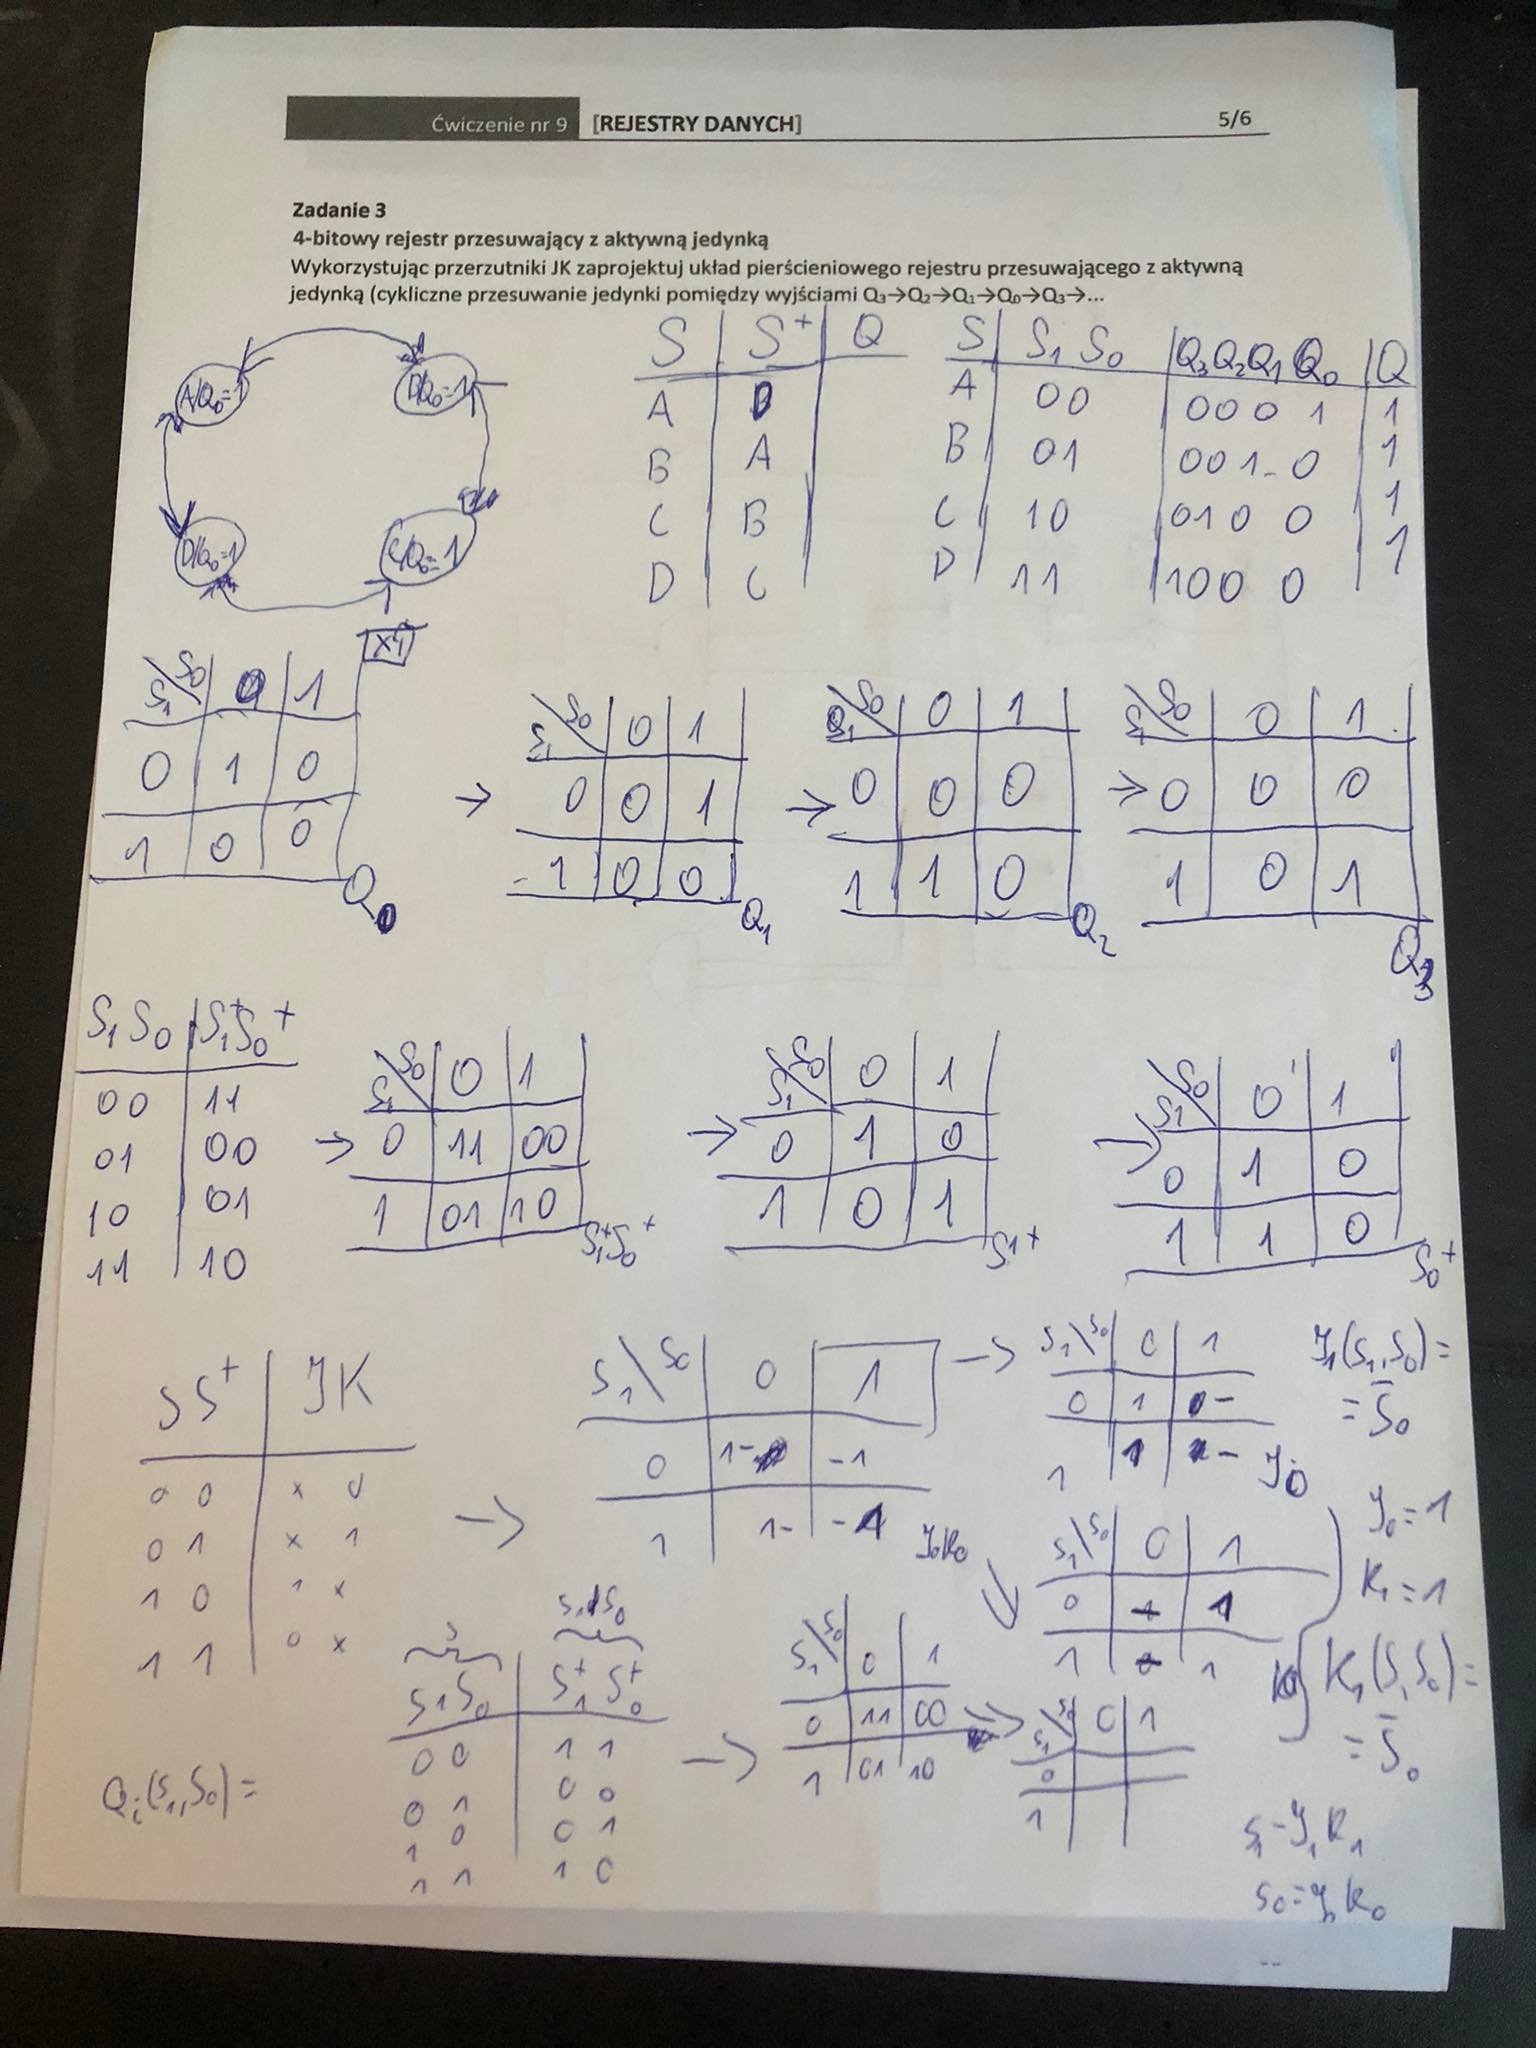 Ćwiczenie nr 9 [REJESTRY DANYCH] 5/6
Zadanie 3
4-bitowy rejestr przesuwający z aktywną jedynką
Wykorzystując przerzutniki JK zaprojektuj układ pierścieniowego rejestru przesuwającego z aktywną
jedynką (cykliczne przesuwanie jedynki pomiędzy wyjściami Q₃→Q₂→Q₁→Q₀→Q₃→...
A/Q₀=1 D/Q₀=1
D/Q₀=1 C/Q₀=1
S S⁺ Q
A D
B A
C B
D C
S S₁ S₀ Q₃Q₂Q₁Q₀ Q
A 00 0001 1
B 01 001-0 1
C 10 0100 1
D 11 1000 1
S₁\S₀ 0 1
0 1 0
1 0 0
Q₀
→ S₁\S₀ 0 1
0 0 1
-1 0 0
Q₁
→ S₁\S₀ 0 1
0 0 0
1 1 0
Q₂
→ S₁\S₀ 0 1
0 0 0
1 0 1
Q₃
S₁S₀ S₁⁺S₀⁺
00 11
01 00
10 01
11 10
→ S₁\S₀ 0 1
0 11 00
1 01 10
S₁⁺S₀⁺
→ S₁\S₀ 0 1
0 1 0
1 0 1
S₁⁺
→ S₁\S₀ 0 1
0 1 0
1 1 0
S₀⁺
SS⁺ JK
0 0 x 0
0 1 x 1
1 0 1 x
1 1 0 x
→ S₁\S₀ 0 1
0 1- -1
1 1- -1
J₀K₀
→ S₁\S₀ 0 1
0 1 -
1 1 -
J₀
J₁(S₁,S₀)=
= S̄₀
S₁\S₀ 0 1
0 - 1
1 - 1
J₀=1
K₁=1
K₁(S₁S₀)=
= S̄₀
S₁S₀ S₁⁺S₀⁺
00 11
01 00
10 01
11 10
→ S₁\S₀ 0 1
0 11 00
1 01 10
→ S₁\S₀ 0 1
0
1
Qᵢ(S₁,S₀)=
S₁-J₁K₁
S₀=J₀K₀